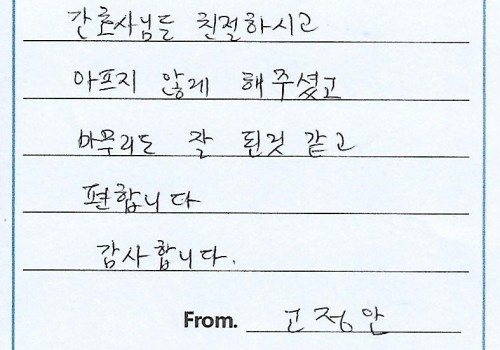 간호사님들 친절하시고
아프지 않게 해주셨고
마무리도 잘 된것 같고
편합니다
감사합니다.
From. 고정안